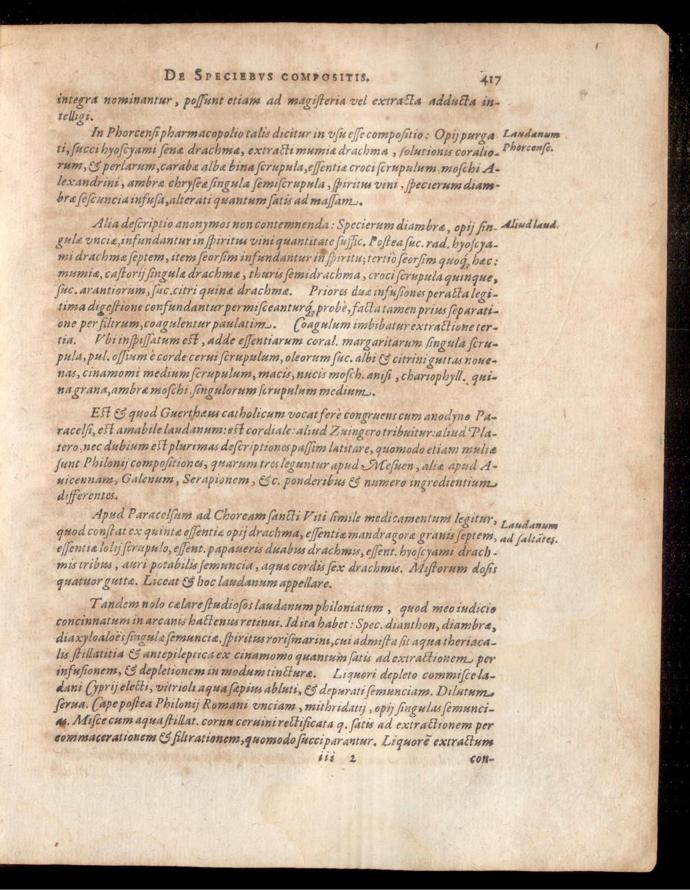 DE SPECIEBVS COMPOSITIS. 417
integra nominantur, possunt etiam ad magisteria vel extracta adducta in-
telligi.
In Phorcensi pharmacopolio talis dicitur in vsu esse compositio: Opij purga
ti, succi hyoscyami senæ drachmæ, extracti mumiæ drachma, solutionis coralio-
rum, & perlarum, carabæ albæ bina scrupula, essentiæ croci scrupulum. moschi A-
lexandrini, ambræ chryseæ singula semiscrupula, spiritus vini, specierum diam-
bræ sescuncia infusa, alterati quantum satis ad massam.
Laudanum
Phorcense.
Alia descriptio anonymos non contemnenda: Specierum diambræ, opij sin-
gulæ vnciæ, infundantur in spiritus vini quantitate suffic. Postea suc. rad. hyoscya-
mi drachmæ septem, item seorsim infundantur in spiritu; tertiò seorsim quoq; hæc:
mumiæ, castorij singulæ drachmæ, thuris semidrachma, croci scrupula quinque,
suc. arantiorum, suc. citri quinæ drachmæ. Priores duæ infusiones peracta legi-
tima digestione confundantur permisceanturq́; probè, facta tamen prius separati-
one per filtrum, coagulentur paulatim. Coagulum imbibatur extractione ter-
tia. Vbi inspissatum est, adde essentiarum coral. margaritarum singula scru-
pula, pul. ossium è corde cerui scrupulum, oleorum suc. albi & citrini guttas noue-
nas, cinamomi medium scrupulum, macis, nucis mosch. anisi, chariophyll. qui-
na grana, ambræ moschi singulorum scrupulum medium.
Aliud laud.
Est & quod Guerthæus catholicum vocat ferè congruens cum anodyno Pa-
racelsi, est amabile laudanum: est cordiale: aliud Zuingero tribuitur: aliud Pla-
tero. nec dubium est plurimas descriptiones passim latitare, quomodo etiam multæ
sunt Philonij compositiones, quarum tres leguntur apud Mesuen, aliæ apud A-
uicennam, Galenum, Serapionem, &c. ponderibus & numero ingredientium
differentes.
Apud Paracelsum ad Choream sancti Viti simile medicamentum legitur,
quod constat ex quinta essentia opij drachma, essentiæ mandragoræ granis septem,
essentiæ lolij scrupulo, essent. papaueris duabus drachmis, essent. hyoscyami drach-
mis tribus, auri potabilis semuncia, aquæ cordis sex drachmis. Mistorum dosis
quatuor guttæ. Liceat & hoc laudanum appellare.
Laudanum
ad saltātes.
Tandem nolo cælare studiosos laudanum philoniatum, quod meo iudicio
concinnatum in arcanis hactenus retinui. Id ita habet: Spec. dianthon, diambræ,
diaxyloaloës singulæ semunciæ, spiritus rorismarini, cui admista sit aqua theriaca-
lis stillatitia & antepileptica ex cinamomo quantum satis ad extractionem per
infusionem, & depletionem in modum tincturæ. Liquori depleto commisce la-
dani Cyprij electi, vitrioli aqua sæpius abluti, & depurati semunciam. Dilutum
serua. Cape postea Philonij Romani vnciam, mithridatij, opij singulas semunci-
as. Misce cum aqua stillat. cornu ceruini rectificata q. satis ad extractionem per
commacerationem & filtrationem, quomodo succi parantur. Liquorē extractum
iii 2 con-